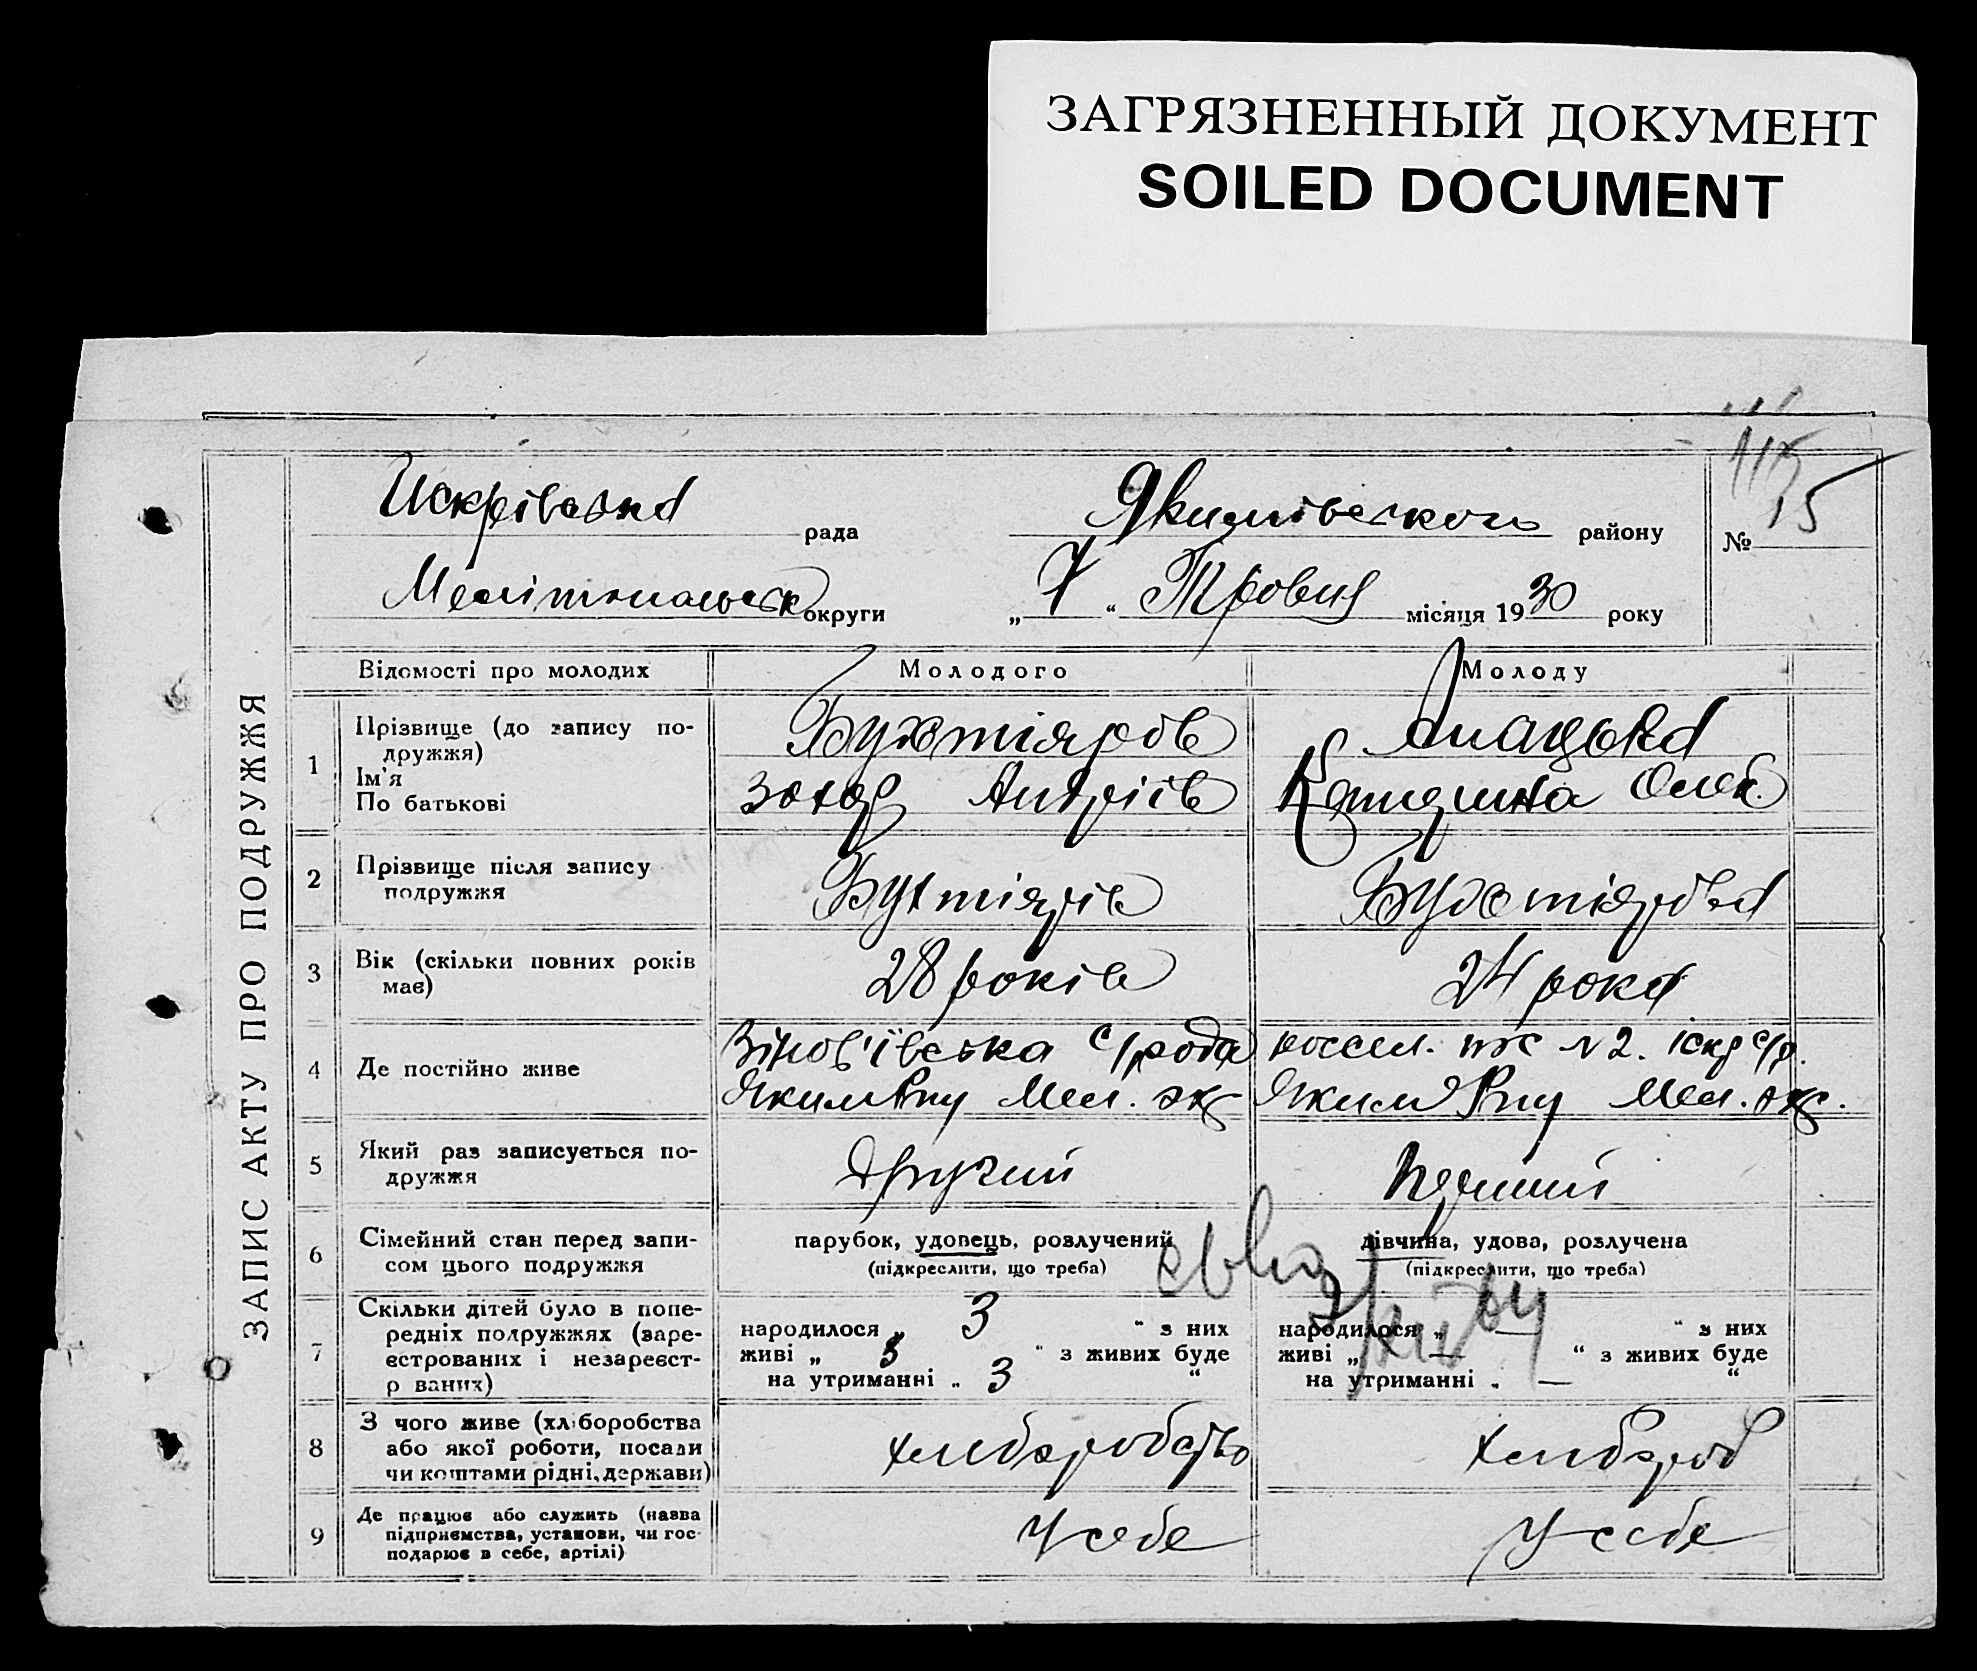 ЗАГРЯЗНЕННЫЙ ДОКУМЕНТ
SOILED DOCUMENT
ЗАПИС АКТУ ПРО ПОДРУЖЖЯ
Искрівська рада Якимівського району № 15
Мелітопольськ округи „ 7 “ Травня місяця 1930 року
Відомості про молодих Молодого Молоду
1 Прізвище (до запису подружжя) Ім'я По батькові
Бухтіяров
Захар Андріїв
Олек.
2 Прізвище після запису подружжя Бухтіярів Бухтіярова
3 Вік (скільки повних років має) 28 років 24 рока
4 Де постійно живе
Зінов'ївська с/рада
Яким Р-ну Мел. окр
№ 2. Іскр с/р.
Яким Р-ну Мел. окр.
5 Який раз записується подружжя другий перший
6 Сімейний стан перед записом цього подружжя
парубок, удовець, розлучений
(підкреслити, що треба)
дівчина, удова, розлучена
(підкреслити, що треба)
7 Скільки дітей було в попередніх подружжях (зареєстрованих і незареєстрованих)
народилося „ 3 “ з них
живі „ 3 “ з живих буде
на утриманні „ 3 “
народилося „ — “ з них
живі „ — “ з живих буде
на утриманні „ — “
8 З чого живе (хліборобства або якої роботи, посади чи коштами рідні, держави) хлиборобство хлибороб
9 Де працює або служить (назва підприємства, установи, чи господарює в себе, артілі) У себе У себе